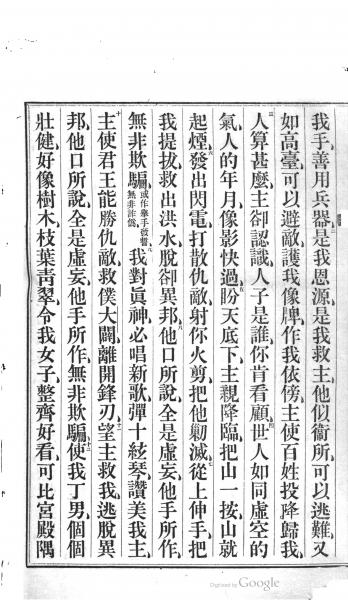 我手善用兵器是我恩源是我救主他似衞所可以逃難又
如高臺可以避敵護我像牌作我依傍主使百姓投降歸我
三人算甚麼主卻認識人子是誰你肯看顧四世人如同虛空的
氣人的年月像影快過五盼天底下主親降臨把山一按山就
起煙六發出閃電打散仇敵射你火剪把他勦滅七從上伸手把
我提拔救出洪水脫卻異邦八他口所說全是虛妄他手所作
無非欺騙或作舉手徒誓無非詐僞九我對眞神必唱新歌彈十絃琴讚美我主
十主使君王能勝仇敵救僕大闢離開鋒刃十一望主救我逃脫異
邦他口所說全是虛妄他手所作無非欺騙十二使我丁男個個
壯健好像樹木枝葉青翠令我女子整齊好看可比宮殿隅
Digitized by Google